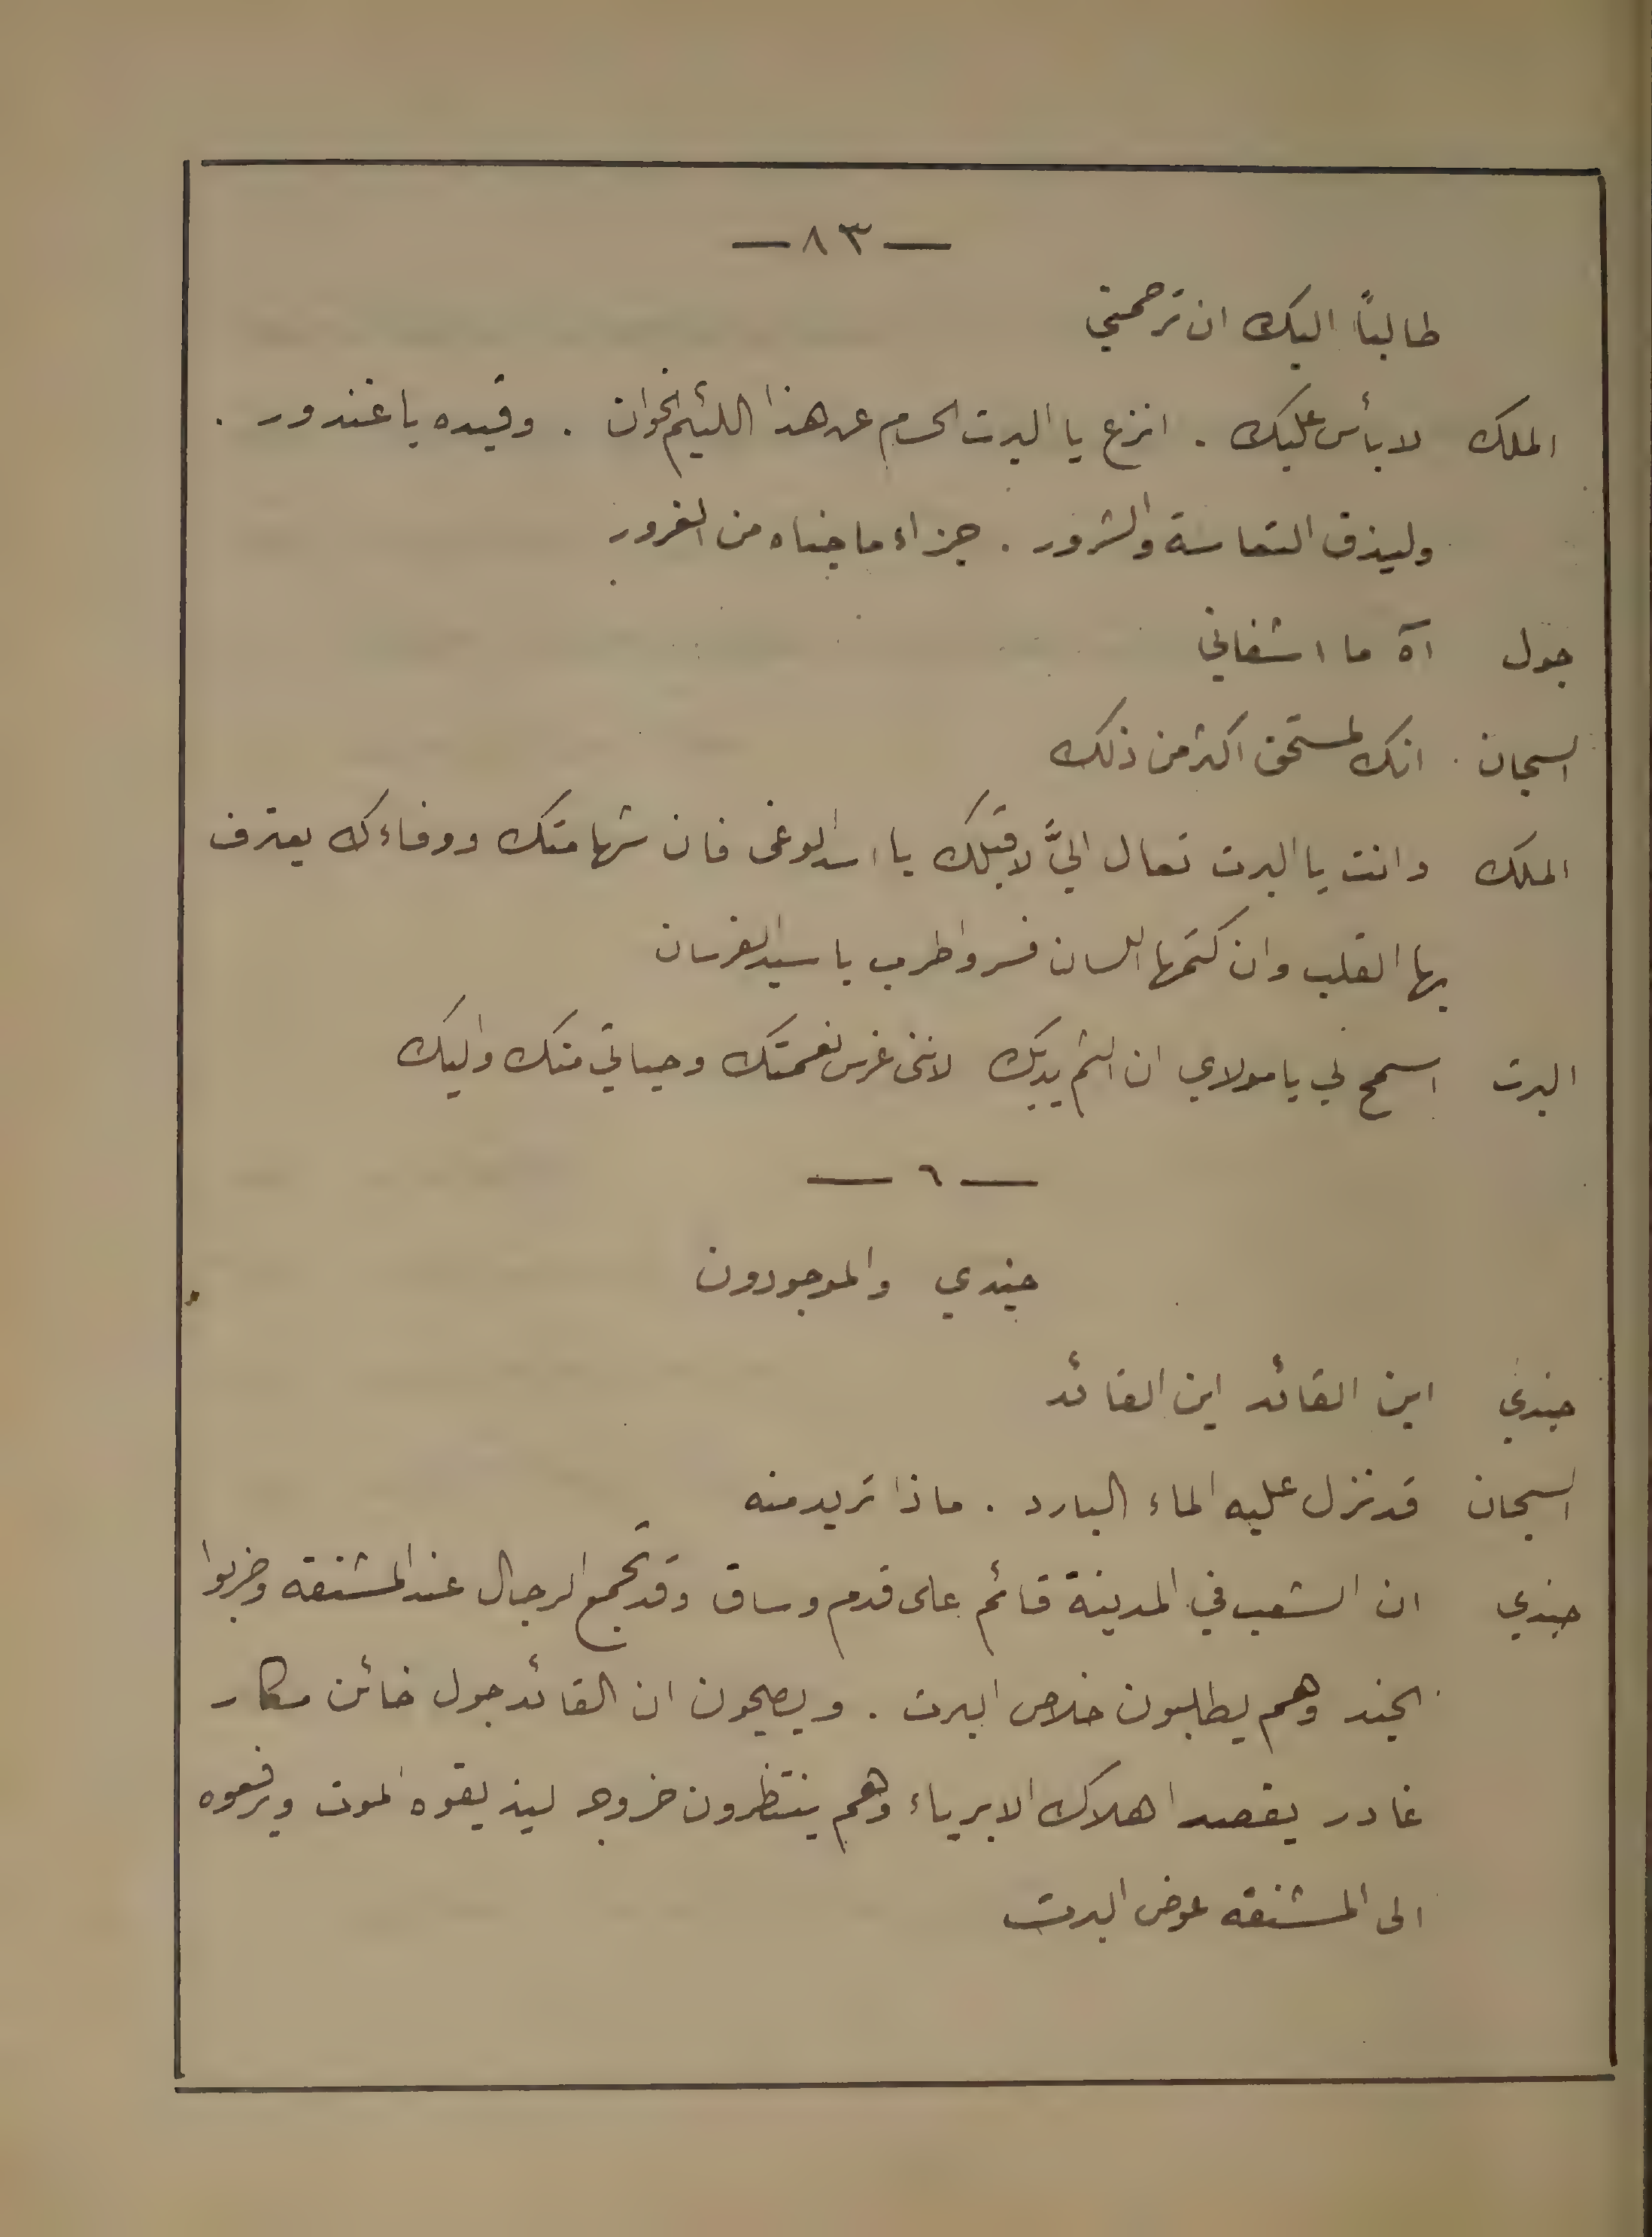 — ٨٣ —
طالباً اليك ان ترحمني
الملك لا بأس عليك . انزع يا البرت الحسام عن هذا اللئيم الخوان . وقيده يا غندور .
وليذق التعاسة والشرور . جزاء ما جناه من الغرور
جول آه ما اشقاني
السجان . انك لمستحق اكثر من ذلك
الملك وانت يا البرت تعال اليَّ لاقبلك يا اسد الوغى فان شهامتك ووفاءك يعترف
بها القلب وان كتمها اللسان فسر واطرب يا سيد الفرسان
البرت اسمح لي يا مولاي ان الثم يديك لانني غرس نعمتك وحياتي منك واليك
— ٦ —
جندي والموجودون
جندي اين القائد اين القائد
السجان قد نزل عليه الماء البارد . ماذا تريد منه
جندي ان الشعب في المدينة قائم على قدم وساق وقد تجمع الرجال عند المشنقه وضربوا
الجند وهم يطلبون خلاص البرت . ويصيحون ان القائد جول خائن مكار
غادر يقصد اهلاك الابرياء وهم ينتظرون خروجه ليذيقوه الموت ويرفعوه
الى المشنقه عوض البرت